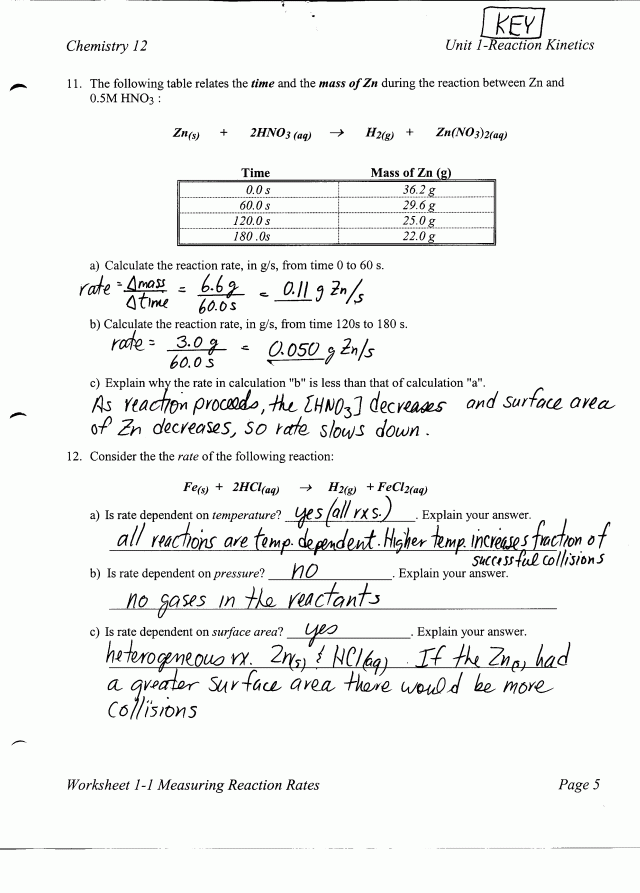 KEY
Chemistry 12 Unit 1-Reaction Kinetics
11. The following table relates the time and the mass of Zn during the reaction between Zn and
0.5M HNO3 :
Zn(s) + 2HNO3 (aq) → H2(g) + Zn(NO3)2(aq)
Time Mass of Zn (g)
0.0 s 36.2 g
60.0 s 29.6 g
120.0 s 25.0 g
180 .0s 22.0 g
a) Calculate the reaction rate, in g/s, from time 0 to 60 s.
rate = Δmass / Δtime = 6.6 g / 60.0 s = 0.11 g Zn/s
b) Calculate the reaction rate, in g/s, from time 120s to 180 s.
rate = 3.0 g / 60.0 s = 0.050 g Zn/s
c) Explain why the rate in calculation "b" is less than that of calculation "a".
As reaction proceeds, the [HNO3] decreases and surface area
of Zn decreases, so rate slows down.
12. Consider the the rate of the following reaction:
Fe(s) + 2HCl(aq) → H2(g) + FeCl2(aq)
a) Is rate dependent on temperature? yes (all rxs.) . Explain your answer.
all reactions are temp. dependent. Higher temp. increases fraction of
successful collisions
b) Is rate dependent on pressure? no . Explain your answer.
no gases in the reactants
c) Is rate dependent on surface area? yes . Explain your answer.
heterogeneous rx. Zn(s) & HCl(aq) If the Zn(s) had
a greater surface area there would be more
collisions
Worksheet 1-1 Measuring Reaction Rates Page 5